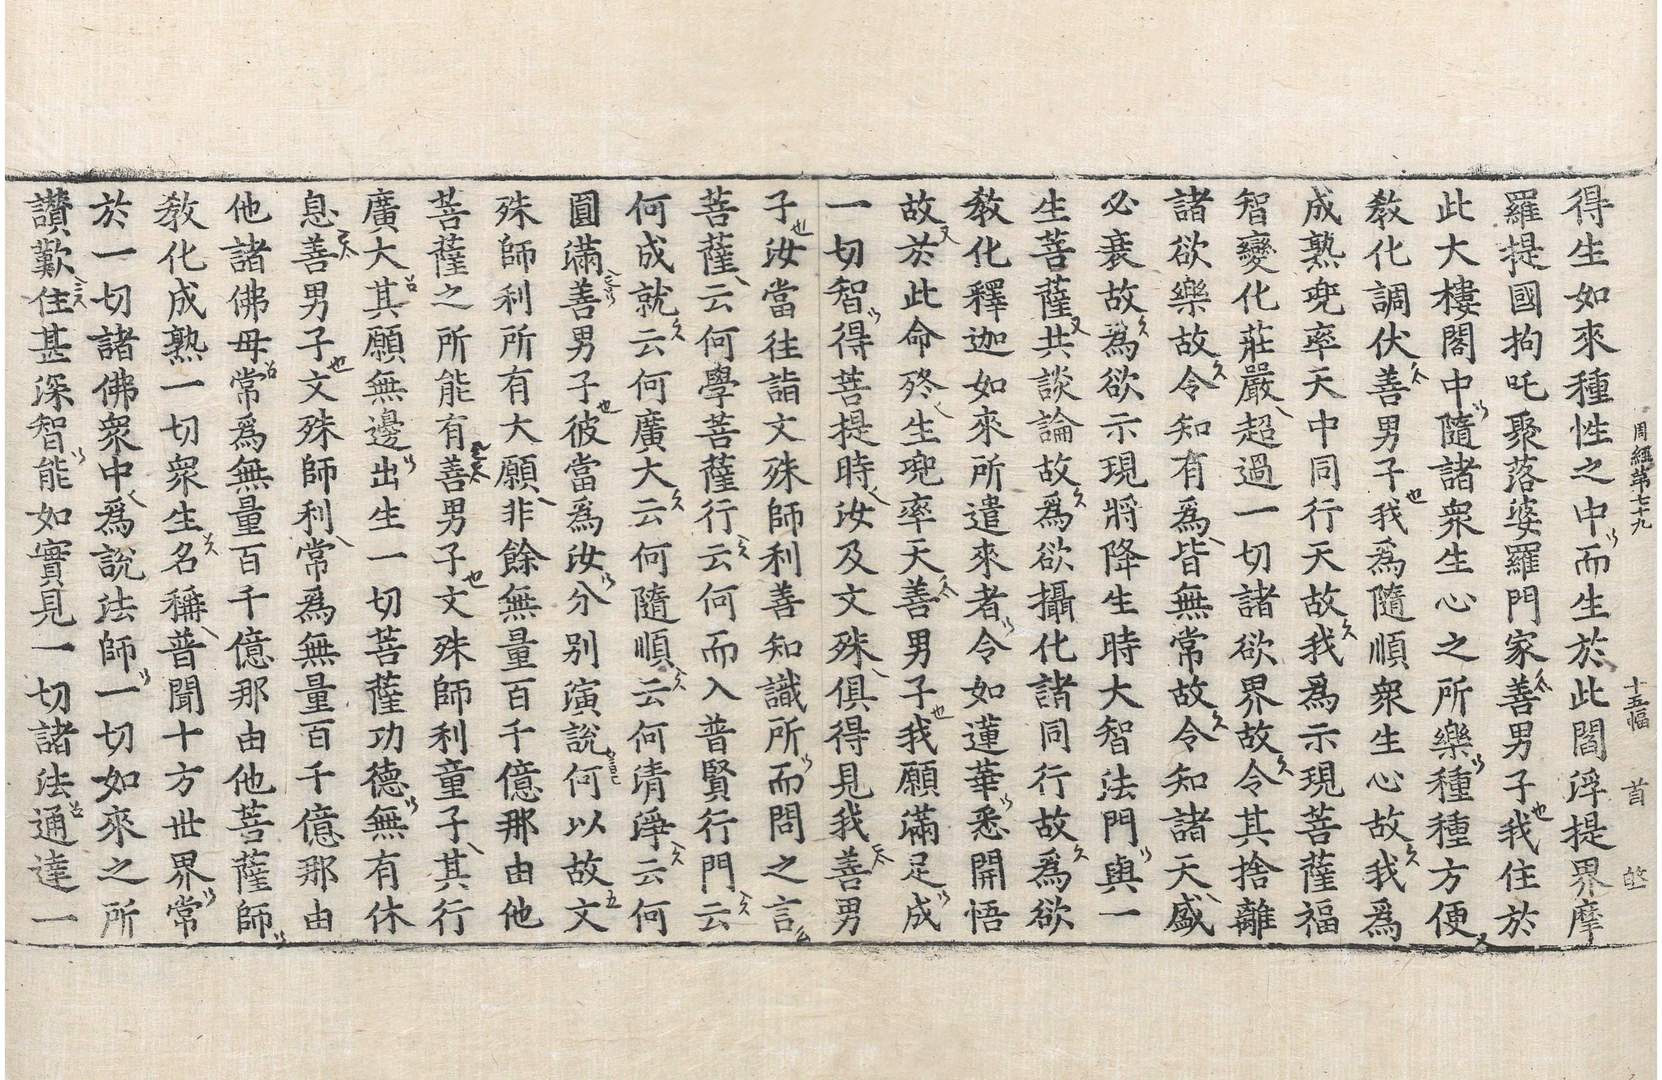 周經第七十九 十五幅 首
得生如來種性之中而生於此閻浮提界摩
羅提國拘吒聚落婆羅門家善男子我住於
此大樓閣中隨諸衆生心之所樂種種方便
教化調伏善男子我爲隨順衆生心故我爲
成熟兜率天中同行天故我爲示現菩薩福
智變化莊嚴超過一切諸欲界故令其捨離
諸欲樂故令知有爲皆無常故令知諸天盛
必衰故爲欲示現將降生時大智法門與一
生菩薩共談論故爲欲攝化諸同行故爲欲
教化釋迦如來所遣來者令如蓮華悉開悟
故於此命終生兜率天善男子我願滿足成
一切智得菩提時汝及文殊俱得見我善男
子汝當往詣文殊師利善知識所而問之言
菩薩云何學菩薩行云何而入普賢行門云
何成就云何廣大云何隨順云何清淨云何
圓滿善男子彼當爲汝分別演說何以故文
殊師利所有大願非餘無量百千億那由他
菩薩之所能有善男子文殊師利童子其行
廣大其願無邊出生一切菩薩功德無有休
息善男子文殊師利常爲無量百千億那由
他諸佛母常爲無量百千億那由他菩薩師
教化成熟一切衆生名稱普聞十方世界常
於一切諸佛衆中爲說法師一切如來之所
讚歎住甚深智能如實見一切諸法通達一